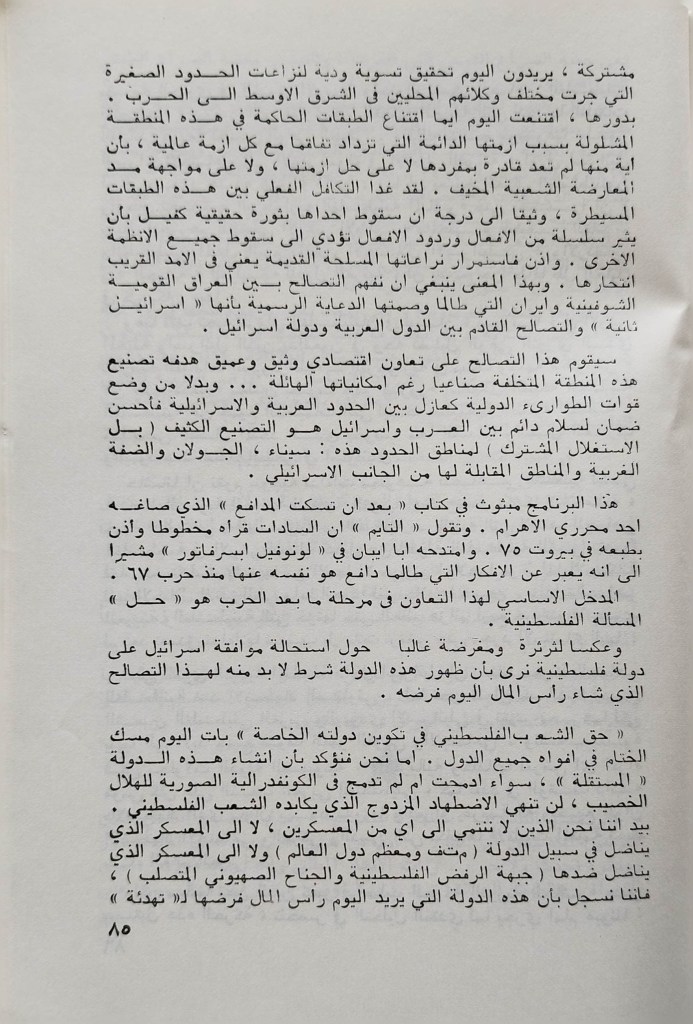 مشتركة ، يريدون اليوم تحقيق تسوية ودية لنزاعات الحـدود الصغيرة
التي جرت مختلف وكلائهم المحليين فى الشرق الاوسط الـى الحرب .
بدورها ، اقتنعت اليوم ايما اقتناع الطبقات الحاكمة في هـذه المنطقـة
المشلولة بسبب ازمتها الدائمة التي تزداد تفاقما مع كل ازمة عالمية ، بأن
أية منها لم تعد قادرة بمفردها لا على حل ازمتها ، ولا على مواجهة مـد
المعارضة الشعبية المخيف . لقد غدا التكافل الفعلي بين هـذه الطبقات
المسيطرة ، وثيقا الى درجة ان سقوط احداها بثورة حقيقية كفيل بأن
يثير سلسلة من الافعال وردود الافعال تؤدي الى سقوط جميـع الانظمة
الاخرى . واذن فاستمرار نزاعاتها المسلحة القديمة يعني فى الامد القريب
انتحارها . وبهذا المعنى ينبغي ان نفهم التصالح بـين العراق القوميـة
الشوفينية وايران التي طالما وصمتها الدعاية الرسمية بأنها « اسرائيـل
ثانية » والتصالح القادم بين الدول العربية ودولة اسرائيل .
سيقوم هذا التصالح على تعاون اقتصادي وثيق وعميق هدفه تصنيع
هذه المنطقة المتخلفة صناعيا رغم امكانياتها الهائلة ... وبدلا من وضع
قوات الطوارىء الدولية كعازل بين الحدود العربية والاسرائيلية فأحسن
ضمان لسلام دائم بين العـرب واسرائيل هـو التصنيع الكثيف ( بـل
الاستغلال المشترك ) لمناطق الحدود هذه : سيناء ، الجـولان والضفة
الغربية والمناطق المقابلة لها من الجانب الاسرائيلي .
هذا البرنامج مبثوث في كتاب « بعد ان تسكت المدافع » الذي صاغـه
احد محرري الاهرام . وتقول « التايم » ان السادات قرأه مخطوطا وأذن
بطبعه في بيروت ٧٥ . وامتدحه ابا ايبان في « لونوفيل ابسرفاتور » مشيرا
الى انه يعبر عن الافكار التي طالما دافع هو نفسه عنها منذ حرب ٦٧ .
المدخل الاساسي لهذا التعاون فى مرحلة ما بعد الحرب هو « حـل »
المسألة الفلسطينية .
وعكسا لثرثرة ومغرضة غالبا حول استحالة موافقة اسرائيل على
دولة فلسطينية نرى بأن ظهور هذه الدولة شرط لا بد منه لهـذا التصالح
الذي شاء رأس المال اليوم فرضه .
« حق الشعـ بالفلسطيني في تكوين دولته الخاصة » بات اليوم مسك
الختام في افواه جميع الدول . اما نحن فنؤكد بأن انشاء هـذه الـدولة
« المستقلة » ، سواء ادمجت ام لم تدمج فى الكونفدرالية الصورية للهلال
الخصيب ، لن تنهي الاضطهاد المزدوج الذي يكابده الشعب الفلسطيني .
بيد اننا نحن الذين لا ننتمي الى اي من المعسكرين ، لا الى المعسكر الذي
يناضل في سبيل الدولة ( م‌ت‌ف ومعظم دول العالم ) ولا الى المعسكر الذي
يناضل ضدها ( جبهة الرفض الفلسطينية والجناح الصهيوني المتصلب ) ،
فاننا نسجل بأن هذه الدولة التي يريد اليوم رأس المال فرضها لـ« تهدئة »
٨٥